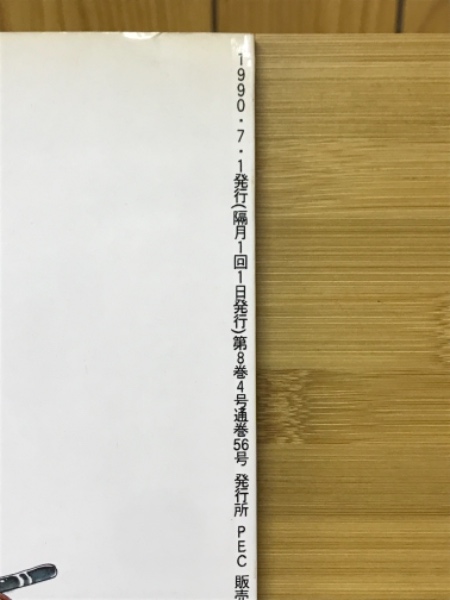 1990・7・1発行(隔月1回1日発行)第8巻4号通巻56号 発行所 PEC 販売